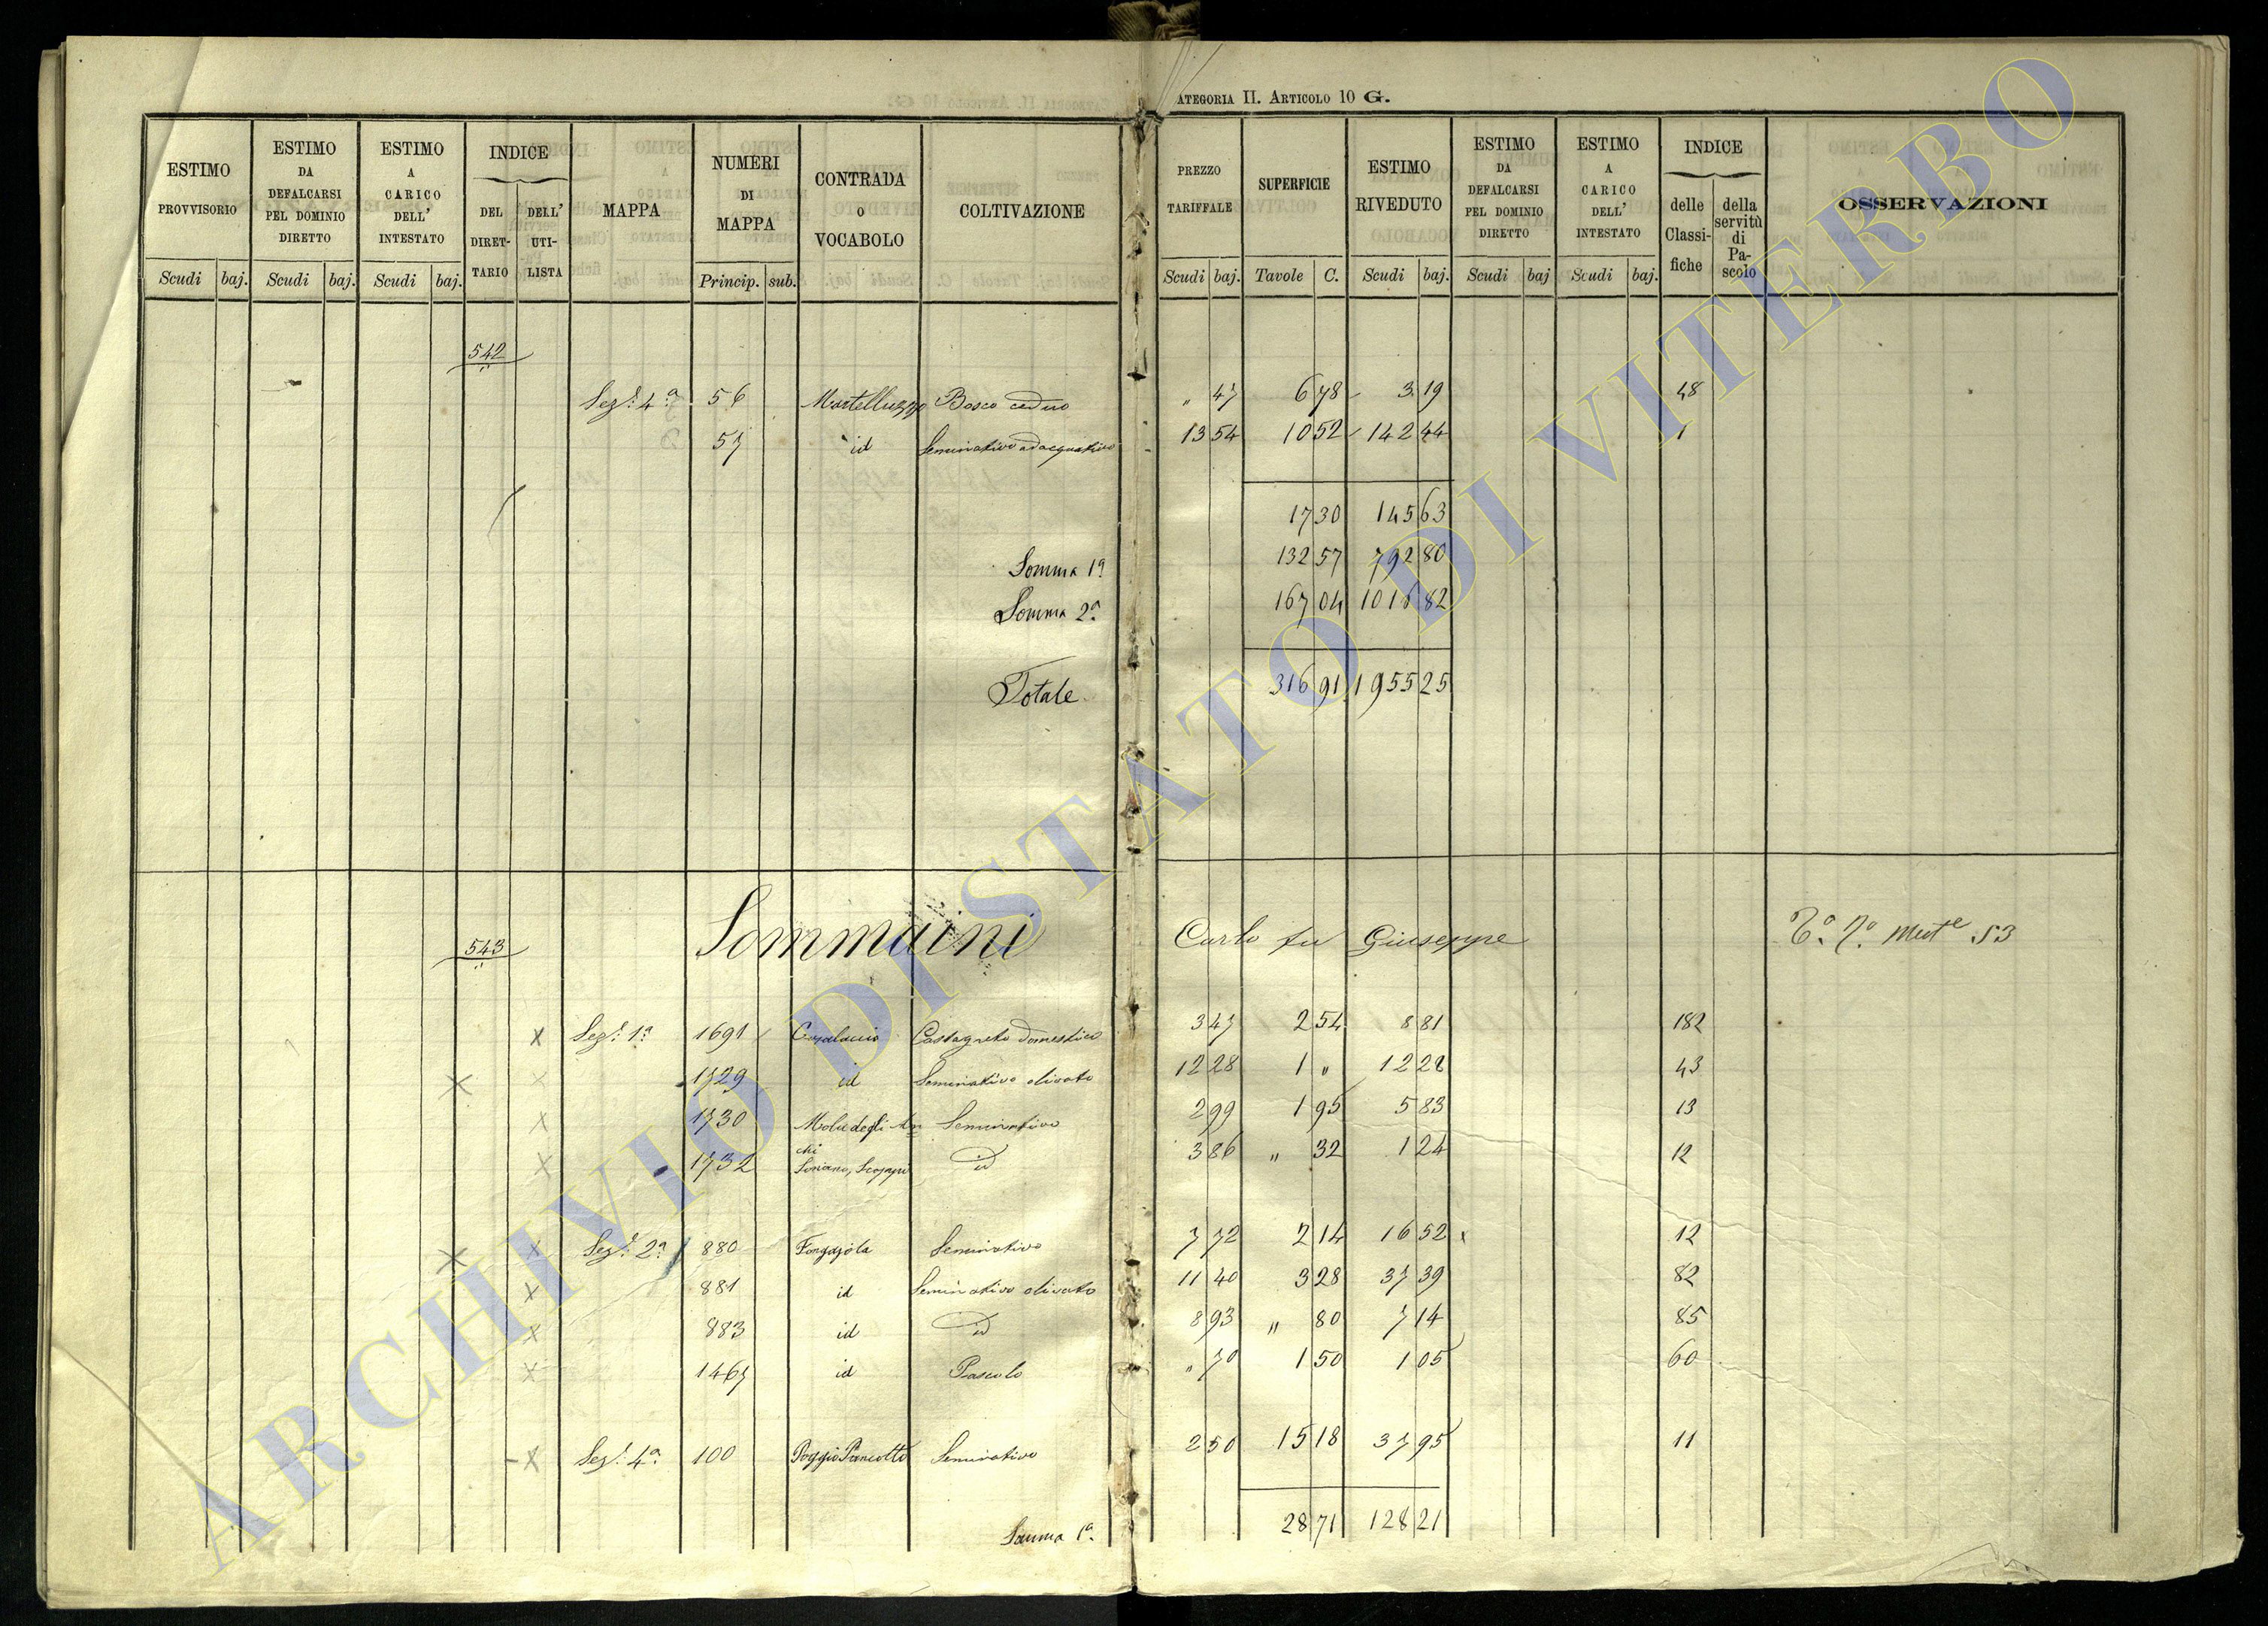 CATEGORIA II. ARTICOLO 10 G.
ESTIMO PROVVISORIO Scudi baj.
ESTIMO DA DEFALCARSI PEL DOMINIO DIRETTO Scudi baj.
ESTIMO A CARICO DELL' INTESTATO Scudi baj.
INDICE DEL DIRETTARIO DELL' UTILISTA
MAPPA
NUMERI DI MAPPA Princip. sub.
CONTRADA O VOCABOLO
COLTIVAZIONE
PREZZO TARIFFALE Scudi baj.
SUPERFICIE Tavole C.
ESTIMO RIVEDUTO Scudi baj.
ESTIMO DA DEFALCARSI PEL DOMINIO DIRETTO Scudi baj
ESTIMO A CARICO DELL' INTESTATO Scudi baj.
INDICE delle Classifiche della servitù di Pascolo
OSSERVAZIONI
542
Sez.e 4a 56 Martelluzzo Bosco ceduo " 47 6 78 3 19 48
57 id Seminativo adacquativo 13 54 10 52 142 44 1
17 30 145 63
Somma 1a 132 57 792 80
Somma 2a 167 04 1016 82
Totale 316 91 1955 25
543 Sommaini Carlo fu Giuseppe 53
X Sez.e 1a 1691 Casalaccio Castagneto domestico 3 47 2 54 8 81 182
X X 1729 id Seminativo olivato 12 28 1 " 12 28 43
X 1730 Seminativo 2 99 1 95 5 83 13
X 1732 id 3 86 " 32 1 24 12
X X Sez.e 2a 880 Seminativo 7 72 2 14 16 52 12
X 881 id Seminativo olivato 11 40 3 28 37 39 82
X 883 id id 8 93 " 80 7 14 85
X 1467 id Pascolo " 70 1 50 1 05 60
X Sez.e 4a 100 Poggio Pancotto Seminativo 2 50 15 18 37 95 11
Somma 1a 28 71 128 21
ARCHIVIO DI STATO DI VITERBO